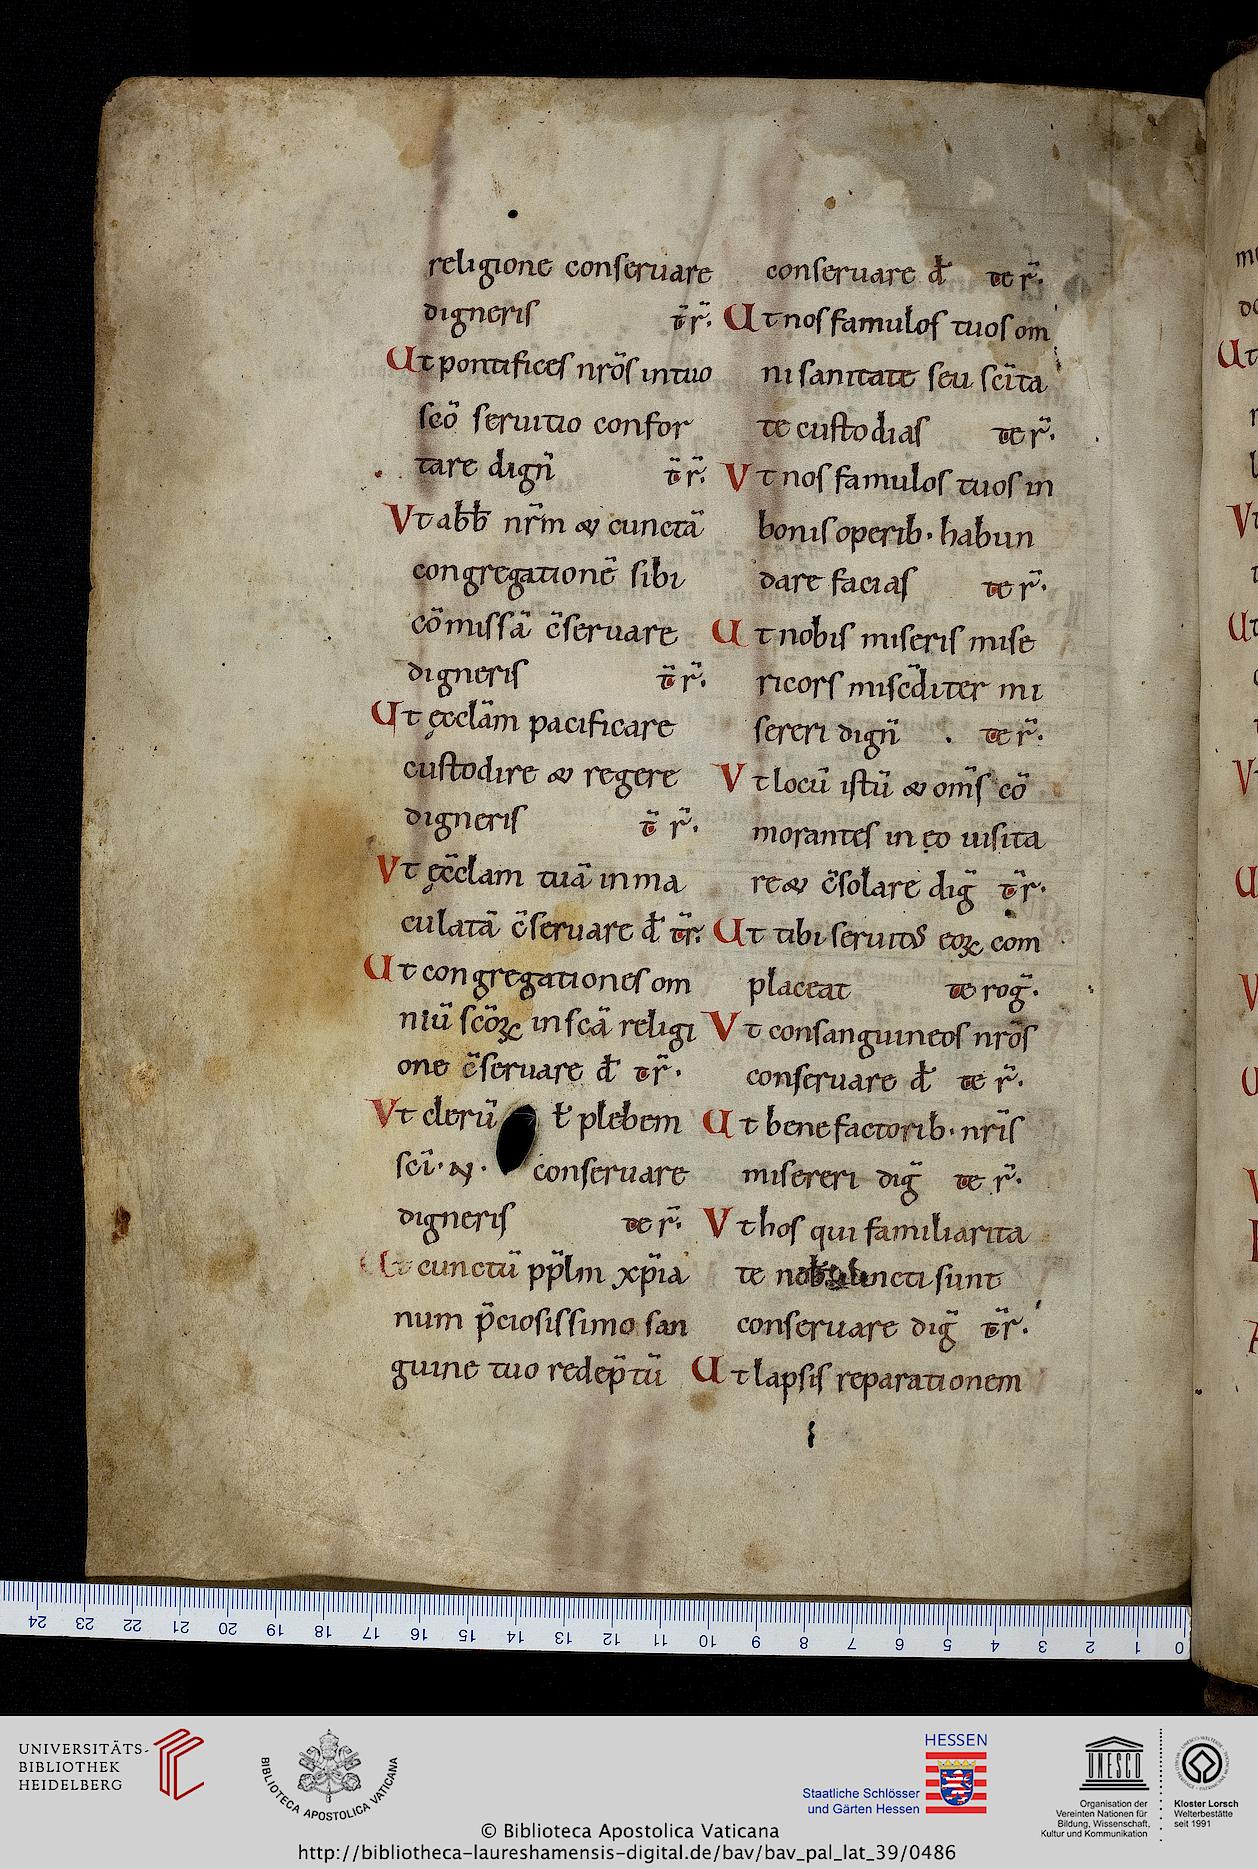 religione conseruare
digneris te r̄.
Ut pontifices nr̄os in tuo
sc̄o seruitio confor
tare dign̄ te r̄.
Vt abb̄ nr̄m & cunctā
congregationē sibi
cōmissā c̄seruare
digneris te r̄.
Ut ęccl̄am pacificare
custodire & regere
digneris te r̄.
Vt ęcc̄lam tuā inma
culatā c̄seruare d̄ te r̄.
Ut congregationes om
niū sc̄oꝝ in sc̄a religi
one c̄seruare d̄ te r̄.
Vt clerū & plebem
sc̄i · N · conseruare
digneris te r̄.
Ut cunctū pp̄lm xp̄ia
num p̄ciosissimo san
guine tuo redep̄tū
conseruare d̄ te r̄.
Ut nos famulos tuos om
ni sanitate seu sc̄ita
te custodias te r̄.
Vt nos famulos tuos in
bonis operib· habun
dare facias te r̄.
Ut nobis miseris mise
ricors misc̄diter mi
sereri dign̄ . te r̄.
Vt locū istū & om̄s cō
morantes in eo uisita
re & c̄solare diḡ te r̄.
Ut tibi seruit eoꝝ com
placeat te roḡ.
Vt consanguineos nr̄os
conseruare d̄ te r̄.
Ut benefactorib· nr̄is
misereri diḡ te r̄.
Vt hos qui familiarita
te iuncti sunt
conseruare diḡ te r̄.
Ut lapsis reparationem
24 23 22 21 20 19 18 17 16 15 14 13 12 11 10 9 8 7 6 5 4 3 2 1 0
UNIVERSITÄTS-
BIBLIOTHEK
HEIDELBERG
BIBLIOTECA APOSTOLICA VATICANA
HESSEN
Staatliche Schlösser
und Gärten Hessen
UNESCO
Organisation der
Vereinten Nationen für
Bildung, Wissenschaft,
Kultur und Kommunikation
Kloster Lorsch
Welterbestätte
seit 1991
© Biblioteca Apostolica Vaticana
http://bibliotheca-laureshamensis-digital.de/bav/bav_pal_lat_39/0486